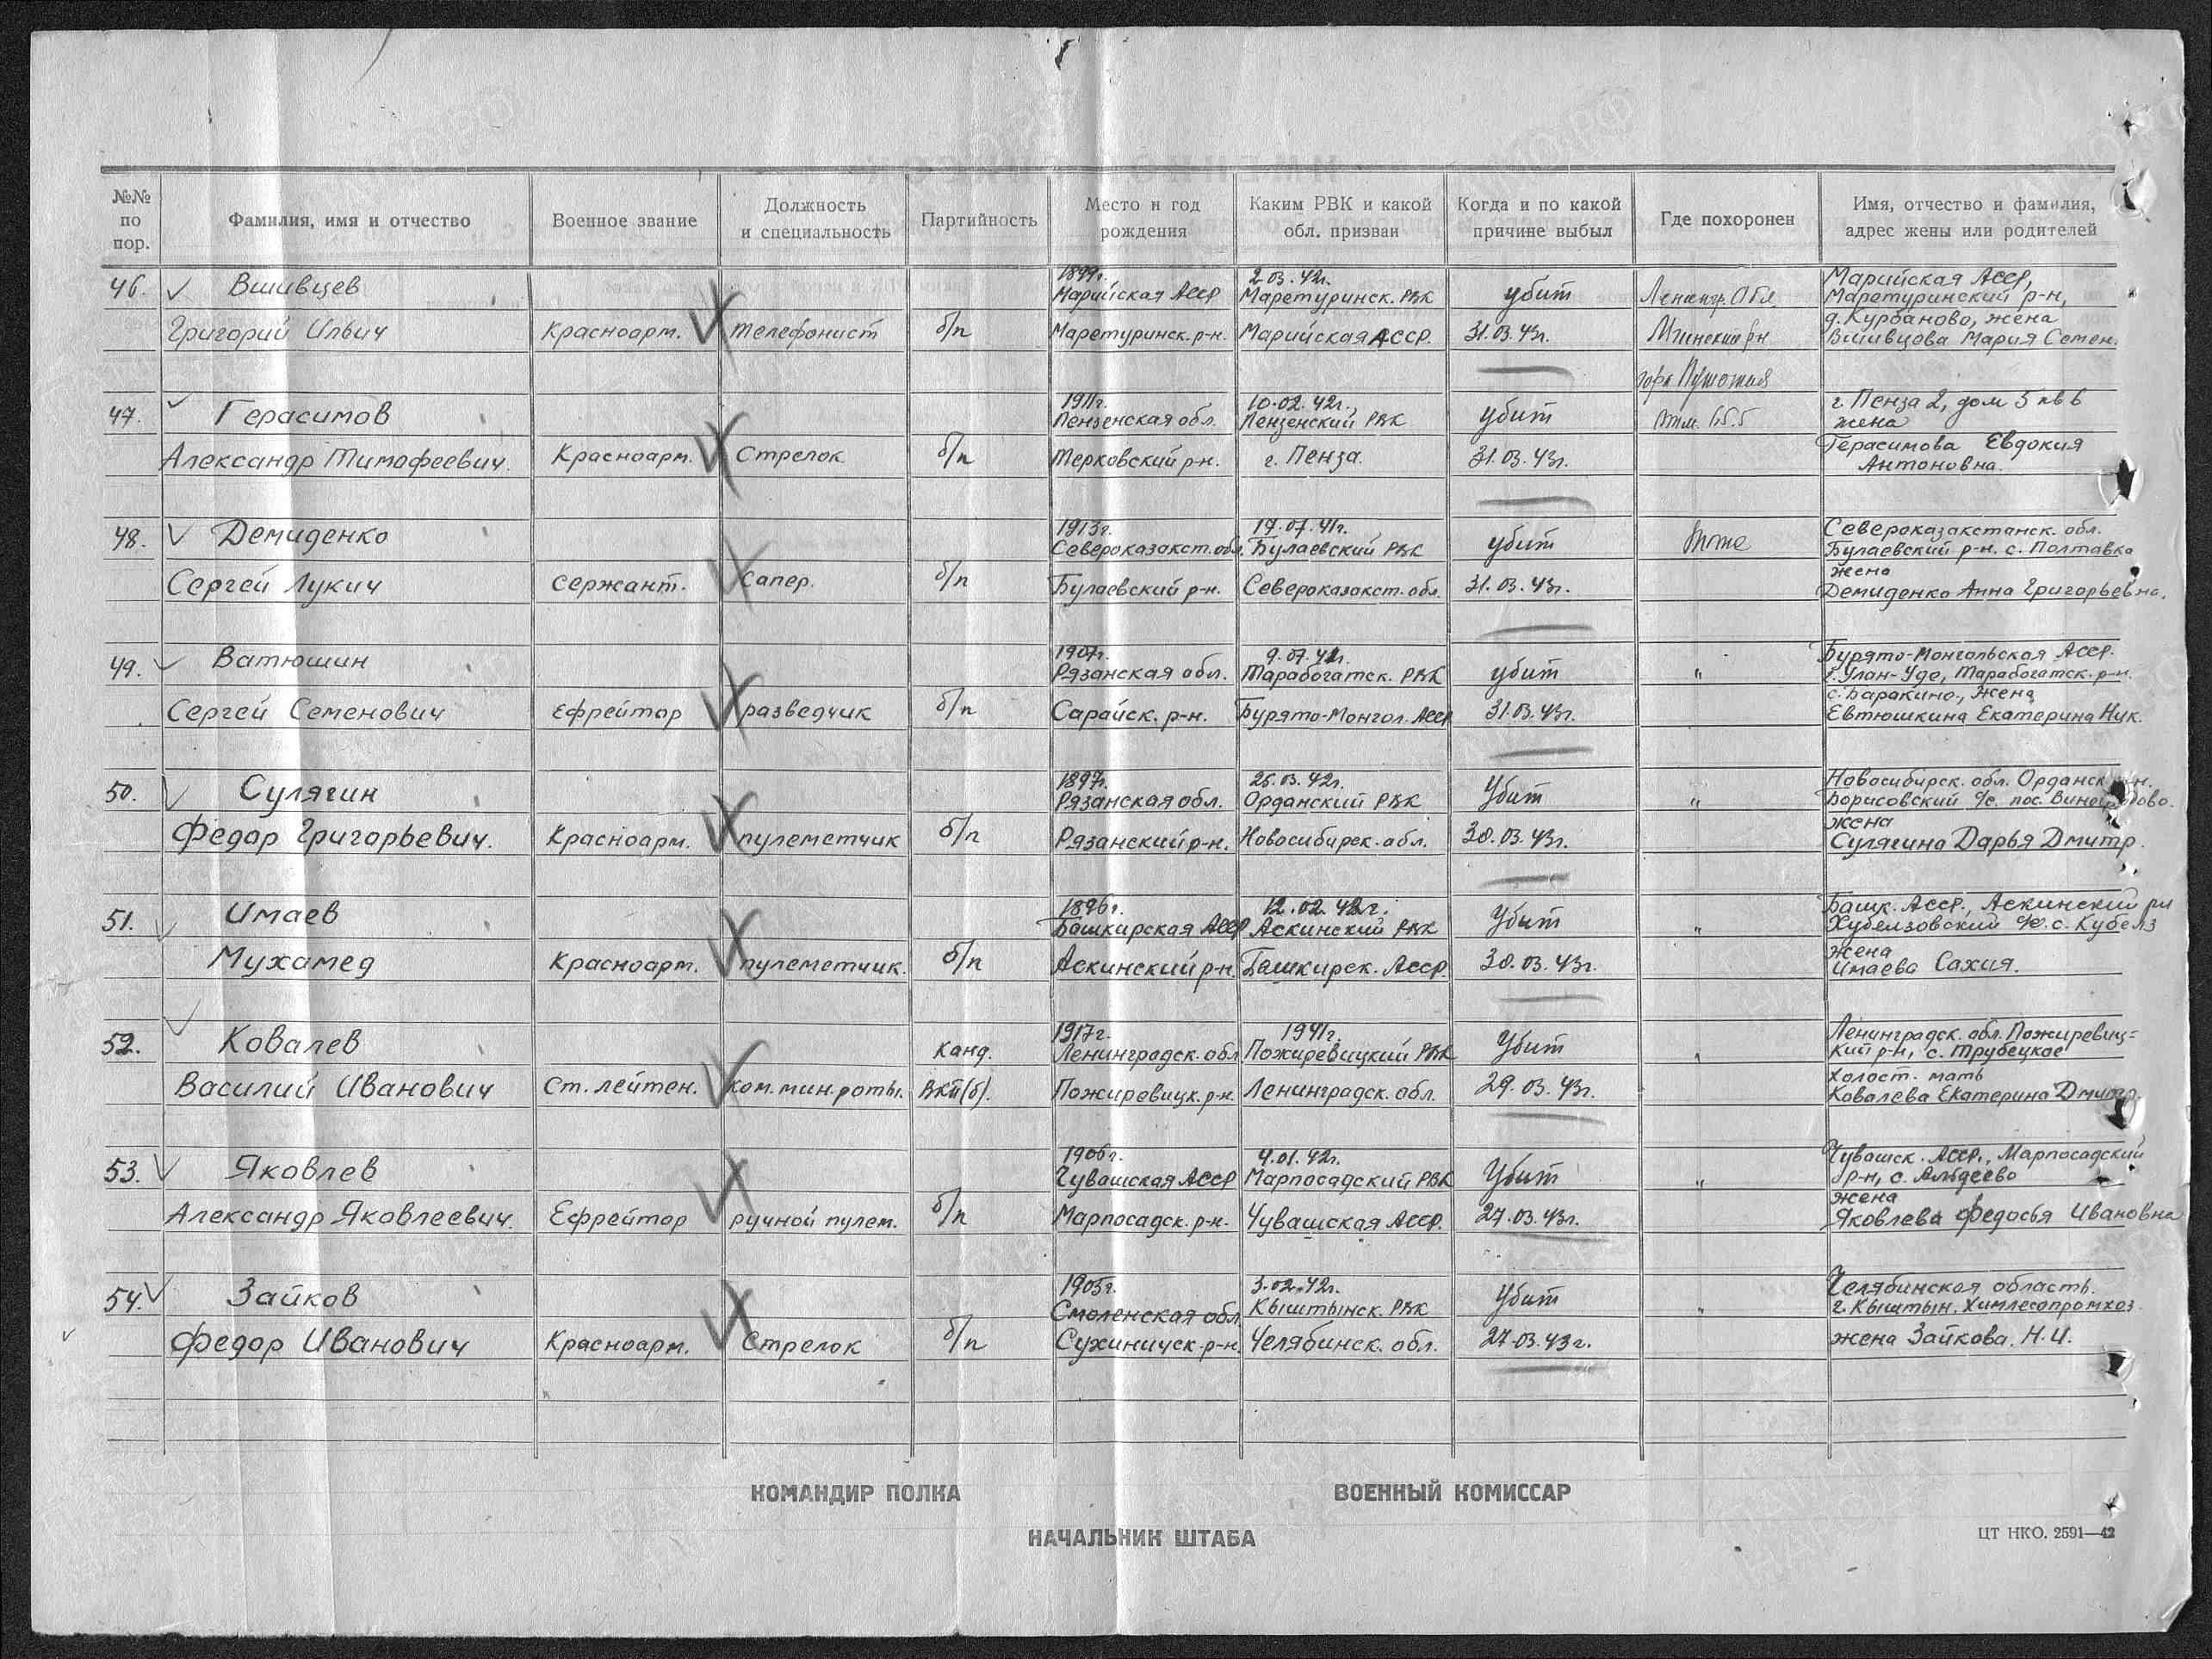 №№ по пор.
Фамилия, имя и отчество
Военное звание
Должность и специальность
Партийность
Место и год рождения
Каким РВК и какой обл. призван
Когда и по какой причине выбыл
Где похоронен
Имя, отчество и фамилия, адрес жены или родителей
46. Вшивцев 1899г. 2.03.42г. Марийская АССР,
Марийская АССР Маретуринск. РВК убит Ленингр. Обл Маретуринский р-н,
д. Курбаново, жена
Григорий Ильич Красноарм. телефонист б/п Маретуринск. р-н. Марийская АССР. 31.03.43г. Мгинский рн Вшивцова Мария Семен.
гора
47. Герасимов 1911г. 10.02.42г. г. Пенза 2, дом 5 кв 6
Пензенская обл. Пензенский РВК убит жена
Александр Тимофеевич. Красноарм. Стрелок б/п Терковский р-н. г. Пенза. 31.03.43г. Герасимова Евдокия
Антоновна.
48. Демиденко 1913г. 17.07.41г. Североказакстанск. обл.
Североказакст. обл. Булаевский РВК убит Булаевский р-н. с. Полтавка
жена
Сергей Лукич сержант. Сапер. б/п Булаевский р-н. Североказакст. обл. 31.03.43г. Демиденко Анна Григорьевна.
49. Ватюшин 1907г. 9.07.41г. Бурято-Монгольская АССР.
Рязанская обл. Тарабогатск. РВК убит " г. Улан-Уде, Тарабогатск. р-н.
с. Баракино., жена
Сергей Семенович Ефрейтор разведчик б/п Сарайск. р-н. Бурято-Монгол. АССР 31.03.43г. Евтюшкина Екатерина Ник.
50. Сулягин 1897г. 25.03.42г. Новосибирск. обл. Орданск
Рязанская обл. Орданский РВК Убит " Борисовский с/с. пос.
жена
Федор Григорьевич. Красноарм. пулеметчик б/п Рязанский р-н. Новосибирск. обл. 30.03.43г. Сулягина Дарья Дмитр.
51. Имаев 1896г. 12.02.42г. Башк. АССР., Аскинский рн
Башкирская АССР Аскинский РВК Убит " Хубелзовский с/с. с. Кубелз
жена
Мухамед Красноарм. пулеметчик. б/п Аскинский р-н. Башкирск. АССР. 30.03.43г. Имаева Сахия.
52. Ковалев 1917г. 1941г. Ленинградск. обл. Пожиревиц=
канд. Ленинградск. обл. Пожиревицкий РВК Убит " кий р-н, с. Трубецкое
холост. мать
Василий Иванович Ст. лейтен. ком. мин. роты. ВКП(б). Пожиревицк. р-н. Ленинградск. обл. 29.03.43г. Ковалева Екатерина Дмитр.
53. Яковлев 1906г. 4.01.42г. Чувашск. АССР., Марпосадский
Чувашская АССР Марпосадский РВК Убит " р-н, с. Альдеево
жена
Александр Яковлевич. Ефрейтор ручной пулем. б/п Марпосадск. р-н. Чувашская АССР. 27.03.43г. Яковлева Федосья Ивановна
54. Зайков 1905г. 3.02.42г. Челябинская область.
Смоленская обл. Кыштынск. РВК Убит " г. Кыштын. Химлесопромхоз.
Федор Иванович Красноарм. Стрелок б/п Сухиничск. р-н. Челябинск. обл. 27.03.43г. жена Зайкова. Н.И.
КОМАНДИР ПОЛКА
ВОЕННЫЙ КОМИССАР
НАЧАЛЬНИК ШТАБА
ЦТ НКО. 2591—42